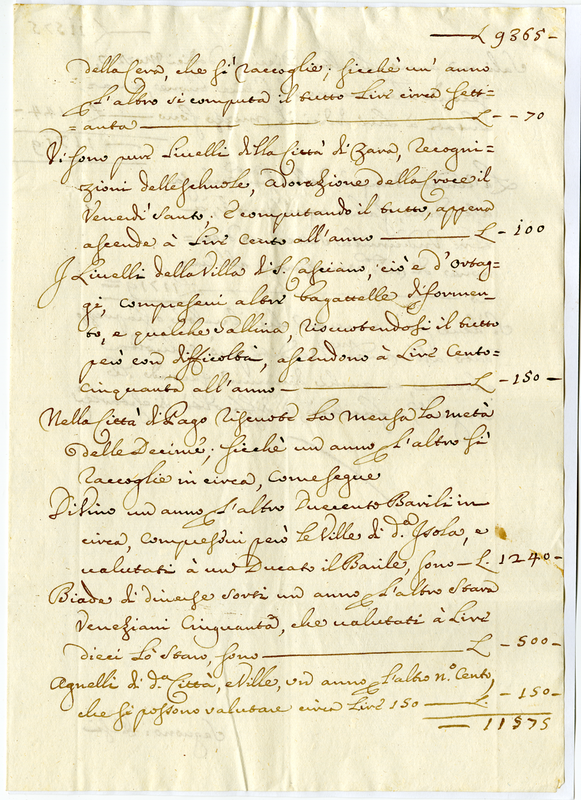 L 9365 -
della Cera, che si raccoglie; sicchè un' anno
p l'altro si computa il tutto Lire circa Sett=
=anta — L - - 70
Vi sono pur Livelli della Città di Zara, recogni=
zioni delle Schuole, adorazione della Croce il
Venerdì Santo; E computando il tutto, appena
ascende à Lire Cento all'anno — L - 100
I Livelli della Villa di S. Cassiano, ciò è d'ortag=
gi, compresevi altre bagattelle di formen=
to, e qualche gallina, riscuotendosi il tutto
però con difficoltà, ascendono à Lire Cento=
cinquanta all'anno — L - 150 -
Nella Città di Pago riscuote la mensa la metà
delle Decime; sicchè un anno p l'altro si
raccoglie in circa, come segue
Di Vino un anno p l'altro Duecento Barili in
circa, compresivi però le Ville di d.ª Isola, e
valutati à un Ducato il Barile, sono — L. 1240 -
Biade di diuerse sorti un anno p l'altro Stara
Veneziani Cinquanta, che valutati à Lire
dieci lo Staro, sono — L - 500 -
Agnelli di d.ª Città, e Ville, un anno p l'altro n.º Cento,
che si possono valutare circa Lire 150 — L. - 150 -
— 11575